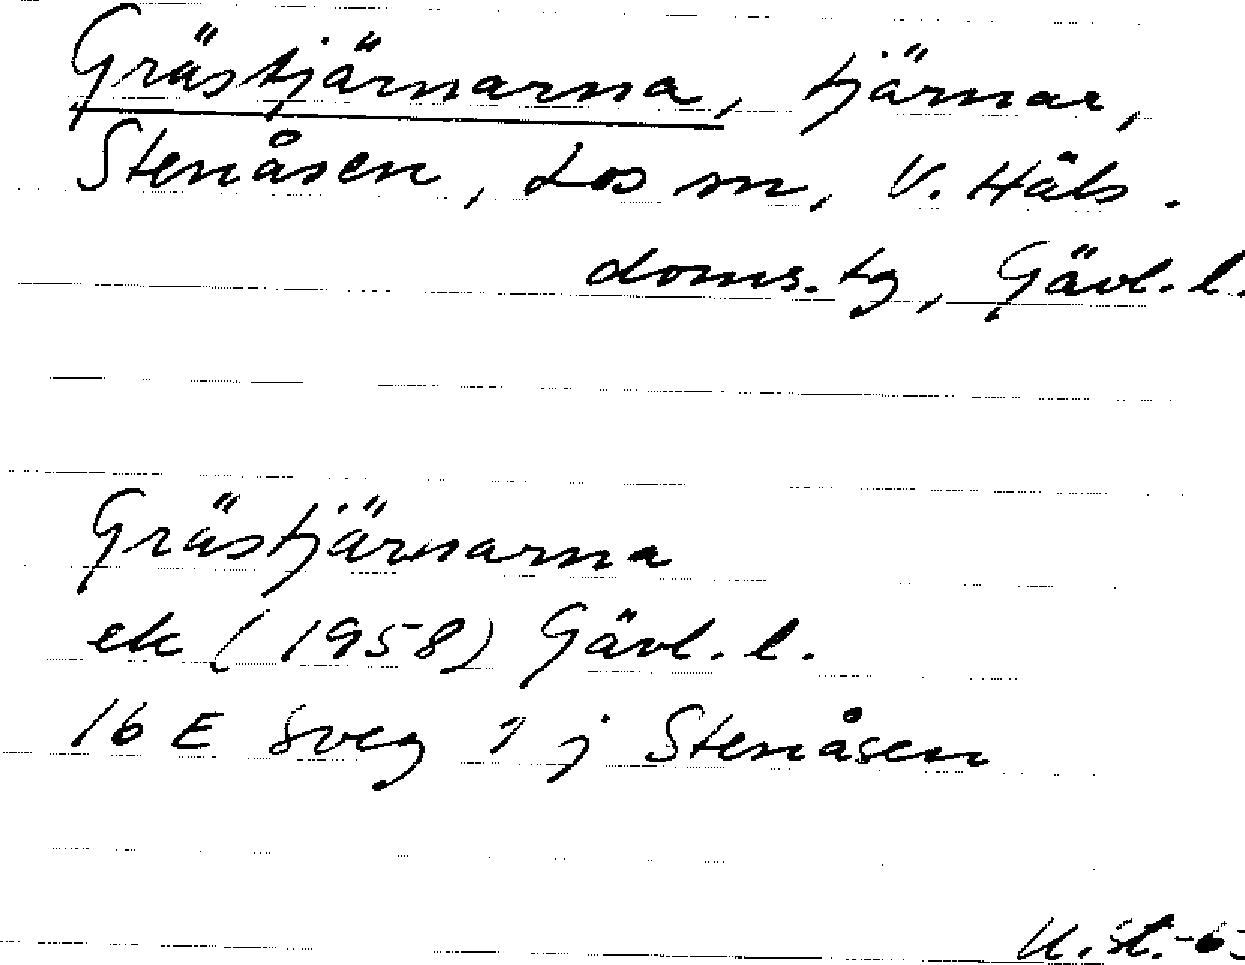 Grästjärnarna, tjärnar,
Stenåsen, Los sn, V. Häls.
doms. tg, Gävl. l.
Grästjärnarna
ek (1958) Gävl. l.
16 E Sveg j Stenåsen
U. St.